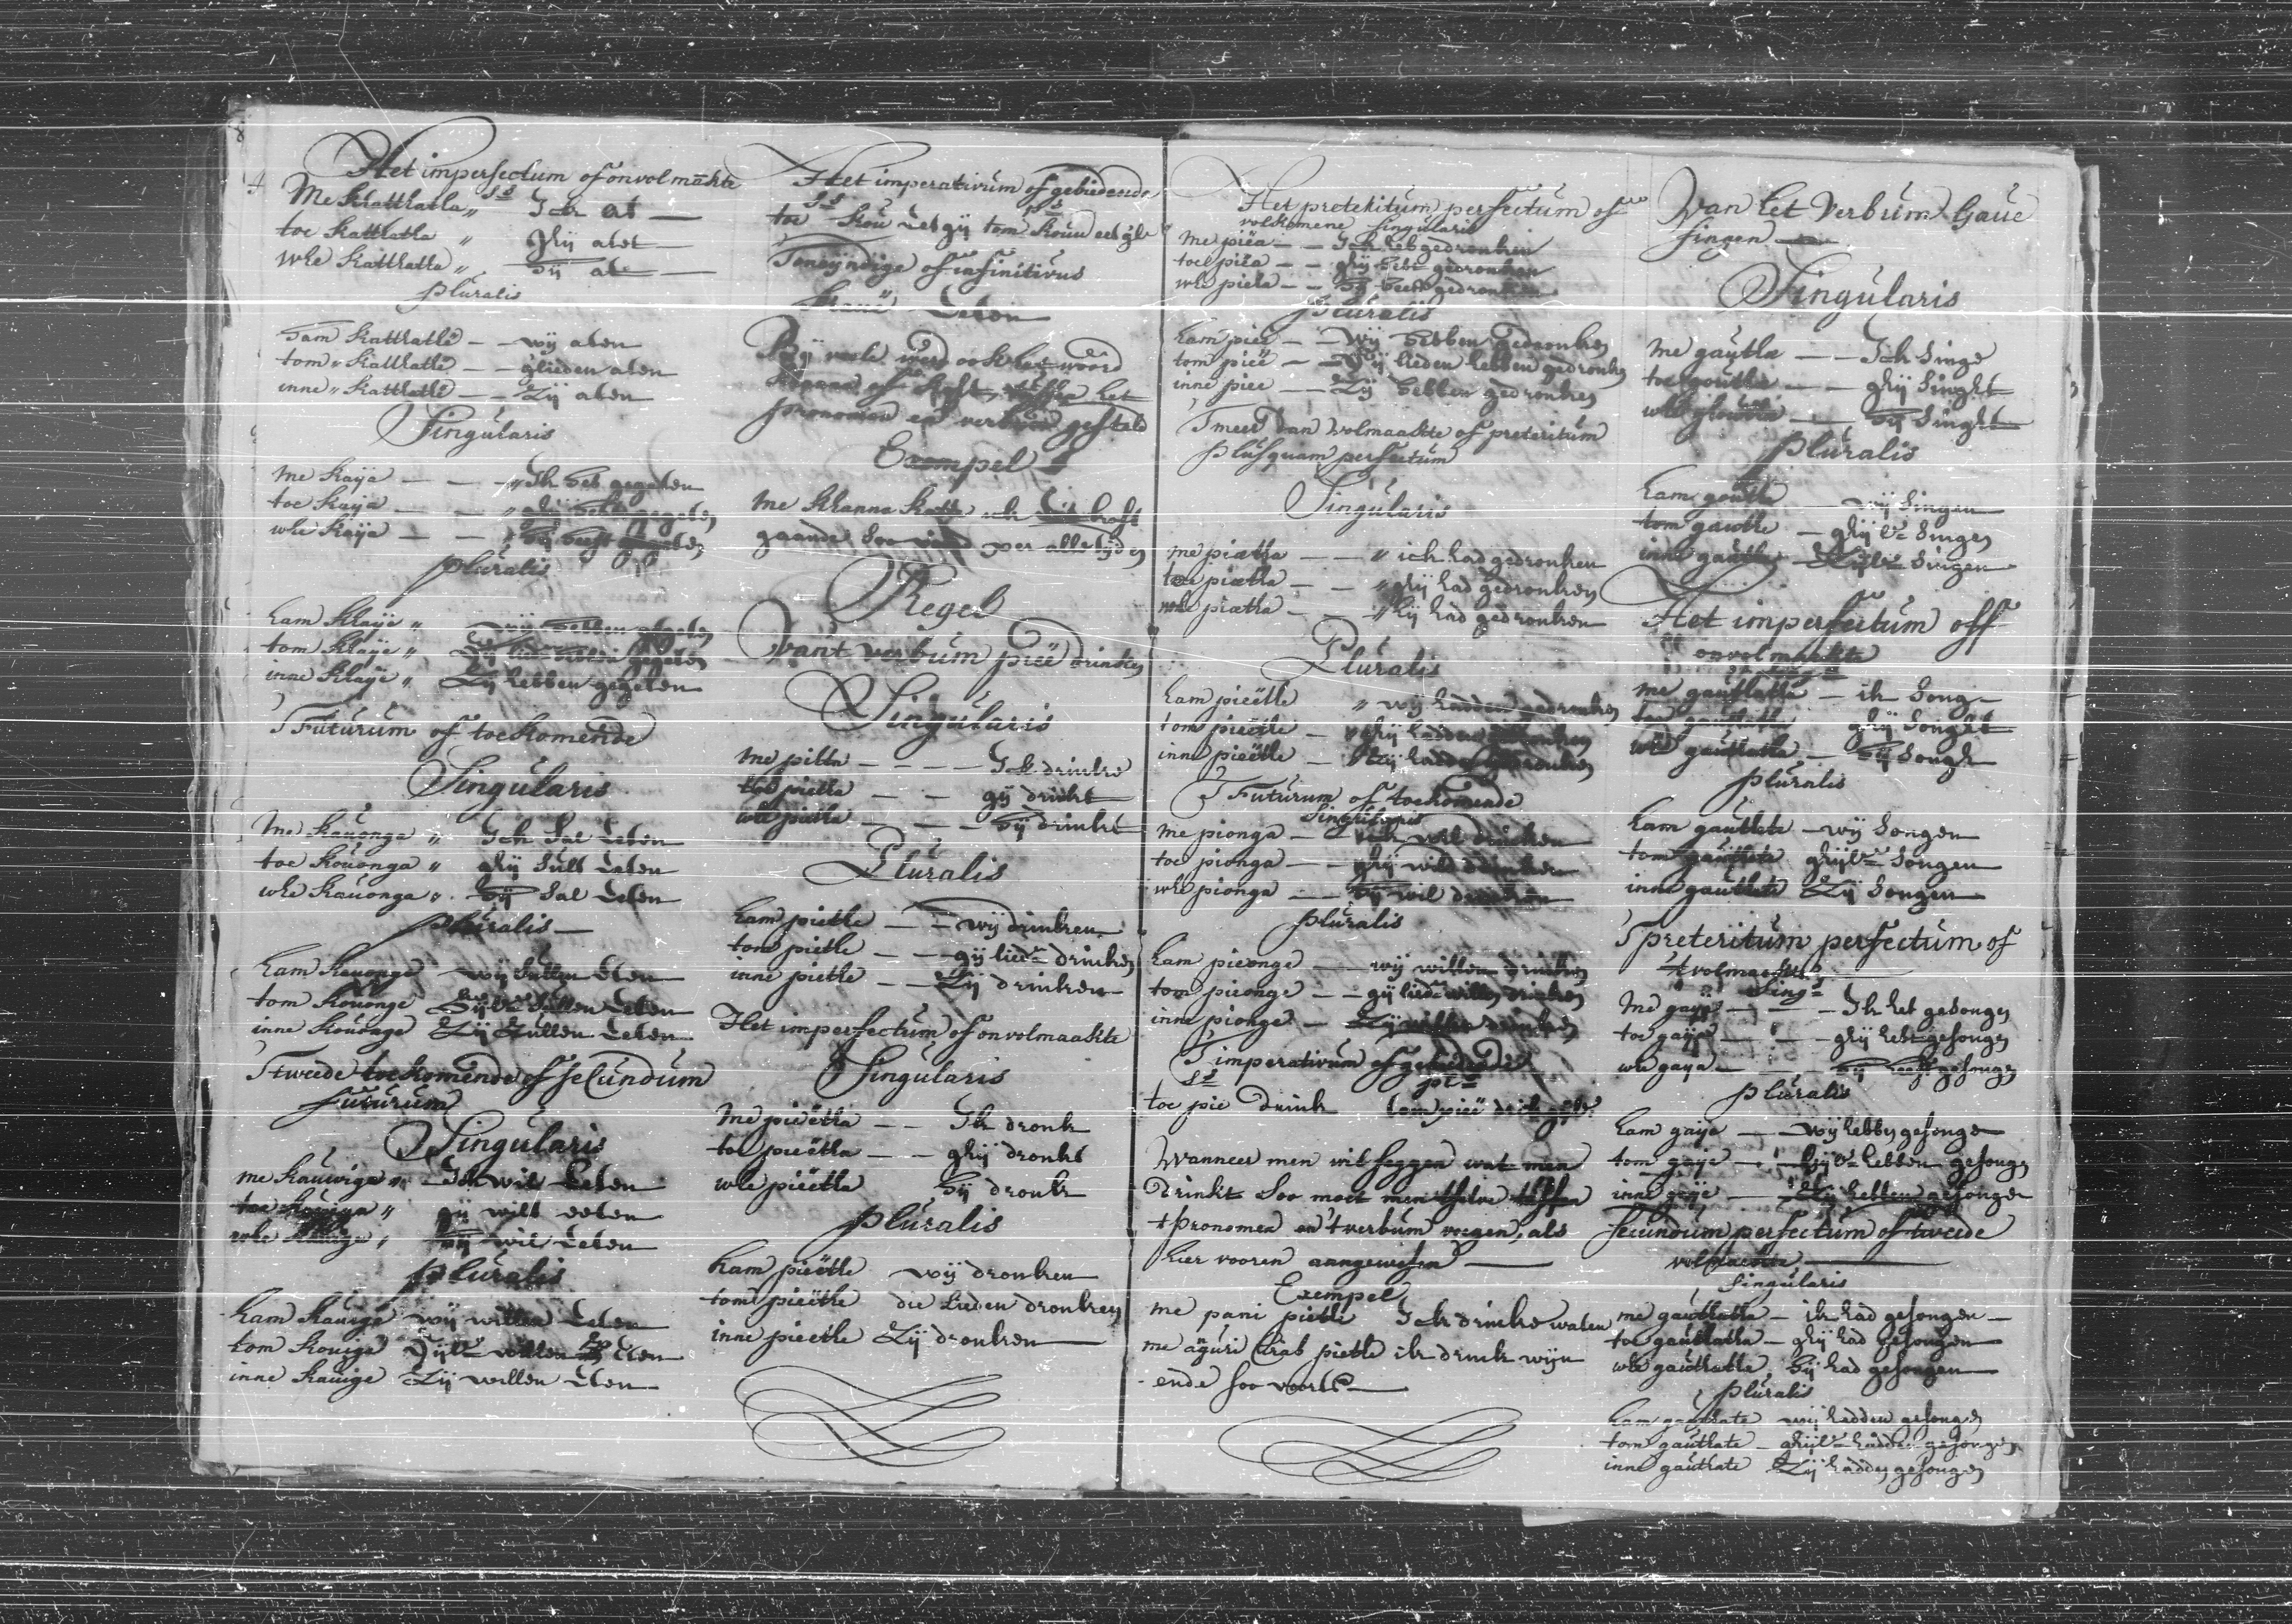 4
Het imperfectum of onvolmākte
Me Khatthatha „ Ick at —
toe Katthatha „ Ghÿ atet —
whe Katthatta „ hÿ at —
pluralis
ham Katthatthe — — wÿ aten
tom „ Katthatthe — — glieden aten
inne „ Katthatthe — — Zÿ aten
Singularis
me Kaÿa — — „ Ik heb gegeten
toe Kaÿa — — „ ghÿ hebt gegeten
whe Kaÿa — — hÿ heeft gegeten
pluralis
ham Khaÿe „ wÿ hebben gegeten
tom Khaÿe „ hebben gegeten
inne Khaÿe „ Zÿ hebben gegeten
T Futurum of toekomende
Singularis
Me Kauonga „ Ick Sal Eeten
toe Kouonga „ ghÿ Sult Eeten
whe Kauonga „ hÿ Sal Eeten
pluralis —
ham Kauonge wÿ Sullen Eeten
tom Kouonge Sullen Eeten
inne Kouonge Zÿ Zullen Eeten
T tweede toekomende of secundum
futurum
Singularis
me Kauwiga „ Ick wil Eeten
toe Kauiga „ gÿ wilt eeten
whe Kauige „ hÿ wil Eeten
pluralis
ham Kauige wÿ willen Eeten
tom Kouige willen Eeten
inne Kauige Zÿ willen Eten
Het imperativum of gebiedende
toe Kou Eet gÿ tom Kouu eet
Toneÿndige of infinitivus
Eeten
veele werd ook het woord
of het
pronomen en verbum gesteld
Exempel
me Khanna Katta ick
gaande Soo voor alle tÿden
Regel
Vant verbum pieë drincken
Singularis
me pitta — — — Ick drincke
toe pietta — — gÿ drinkt
whe pietta — — — hÿ drinkt
Pluralis
ham pietthe — — wÿ drinken
tom piethe — — gÿ lieden drincken
inne piethe — — Zÿ drinken
Het imperfectum of onvolmaakte
Singularis
me pieëtha — — Ik dronk
toe pieëtha — — ghÿ dronkt
whe pieëtha hÿ dronk
pluralis
ham pieëthe wÿ dronken
tom pieëthe die lieden dronken
inne pieethe Zÿ dronken
Het preteritum perfectum of
volkomene Singularis
me piëa — — Ick heb gedronken
toe piëa — — ghÿ hebt gedronken
whe piëa — — hÿ heeft gedronken
Pluralis
ham pieë — — wÿ hebben gedronken
tom pieë — — gÿ lieden hebben gedronken
inne piee — — Zÿ hebben gedronken
T meer dan volmaakte of preteritum
plusquam perfectum
Singularis
me piætha — — „ ick had gedronken
toe piætha — — „ ghÿ had gedronken
whe piætha — — „ hÿ had gedronken
Pluralis
ham pieëthe „ wÿ hadden gedronken
tom pieëthe — ghÿ hadden gedronken
inne pieëthe — Zÿ hadden gedronken
T Futurum of toekomende
Singularis
me pionga — — ick wil drincken
toe pionga — — ghÿ wilt drincken
whe pionga — — hÿ wil drincken
pluralis
ham pieonge — — wÿ willen drincken
tom pieonge — — gÿ lieden willen drincken
inne pionge — Zÿ willen drinken
T imperativum of gebiedende
toe pie drink tom pieë
Wanneer men wil seggen wat men
drinkt Soo moet men tselve tussen
t pronomen en 't verbum voegen, als
hier vooren aangewesen —
Exempel
me pani pietthe Ick drincke water
me aguri Crab piethe ik drink wÿn
ende soo voorts —
Van het Verbum Gaue
singen —
Singularis
me gautha — — Ick singe
toe goutha — — ghÿ Singht
whe goutha — hÿ Singht
pluralis
ham gouthe wÿ Singen
tom gauthe — ghÿ Singen
inne gauthe Singen
Het imperfectum off
onvolmaakte
me gauthatta — ik Song
toe gauthatta ghÿ Songht
whe gauthatta — hÿ Songh
pluralis
ham gauthate — wÿ Songen
tom gauthate Songen
inne gauthate Zÿ Songen
T preteritum perfectum of
't volmaekte
Sing:
me gaÿa — — Ik heb gesongen
toe gaÿa — — ghÿ hebt gesongen
whe gaya — — hÿ heeft gesongen
pluralis
ham gaÿe — — wÿ hebben gesongen
tom gaÿe — hebben gesongen
inne gaÿe — Zÿ hebben gesongen
secundum perfectum of tweede
volmaekte —
Singularis
me gauthatha — ik had gesongen —
toe gauthatha — ghÿ had gesongen
whe gauthatha hÿ had gesongen
pluralis
ham gauthate wÿ hadden gesongen
tom gauthate — hadden gesongen
inne gauthate Zÿ hadden gesongen